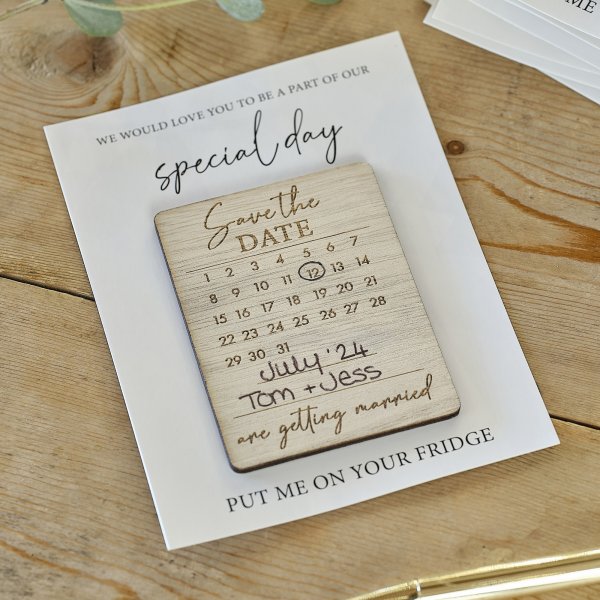 WE WOULD LOVE YOU TO BE A PART OF OUR
special day
Save the
DATE
1 2 3 4 5 6 7
8 9 10 11 12 13 14
15 16 17 18 19 20 21
22 23 24 25 26 27 28
29 30 31
July '24
Tom + Jess
are getting married
PUT ME ON YOUR FRIDGE
ME